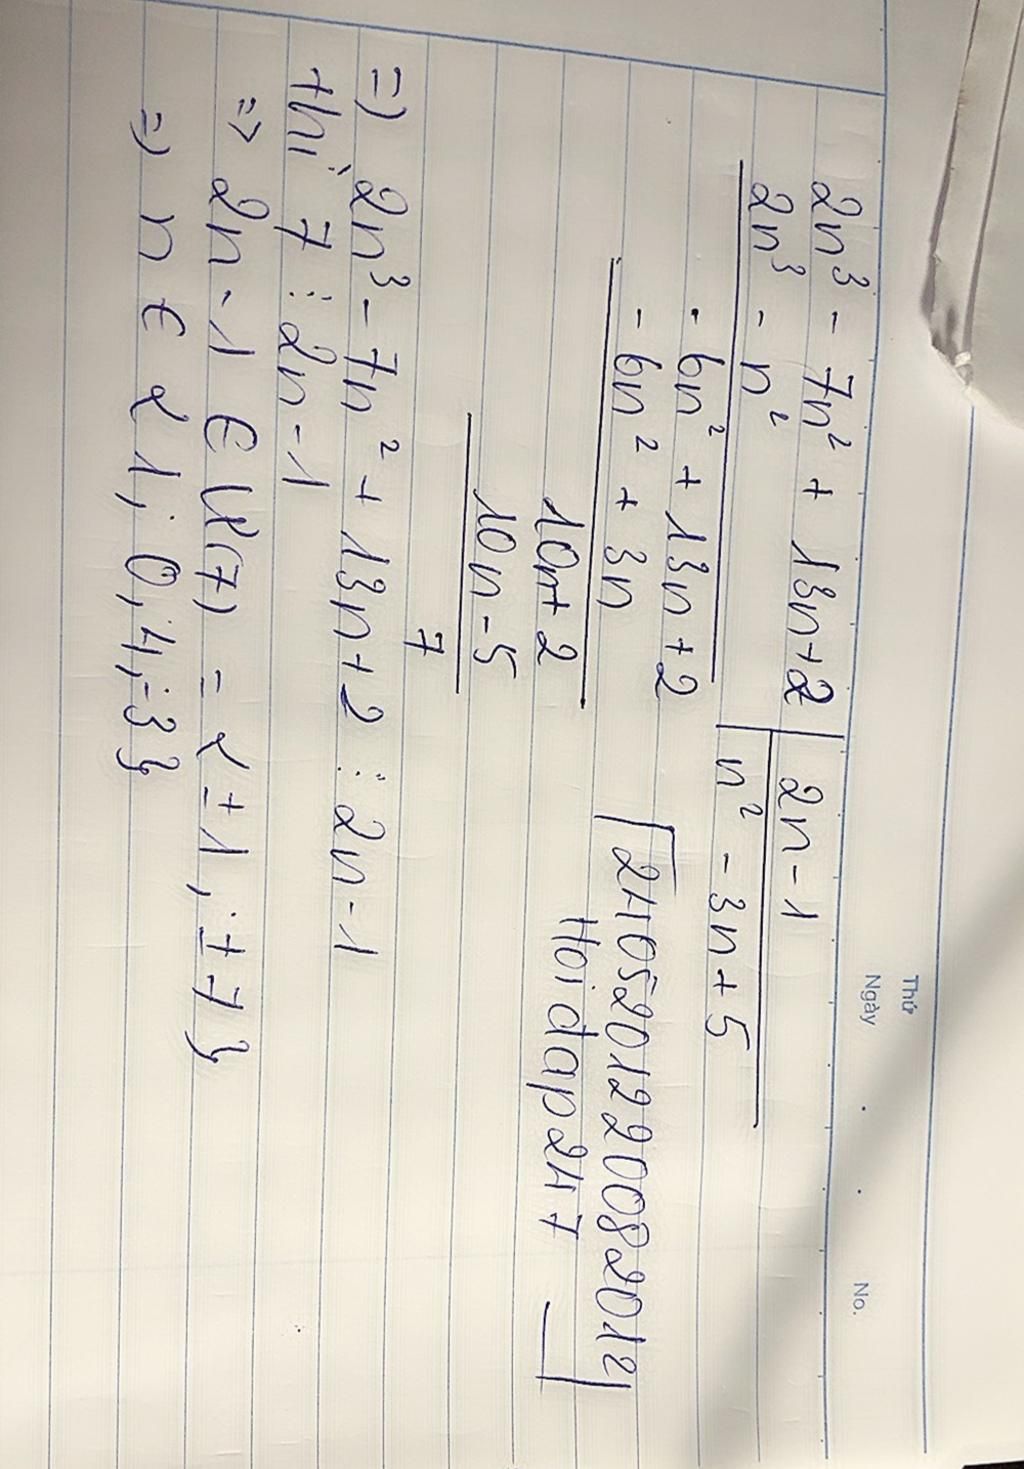 Thứ
Ngày
No.
2n³ - 7n² + 13n+2 | 2n-1
2n³ - n² | n² - 3n + 5
- 6n² + 13n + 2
- 6n² + 3n
10n+2
10n-5
7
24105201220082012
Hoidap247
=) 2n³ - 7n² + 13n+2 ⋮ 2n-1
thì 7 ⋮ 2n-1
=> 2n-1 ∈ Ư(7) = {±1, ±7}
=) n ∈ {1; 0, 4, -3}